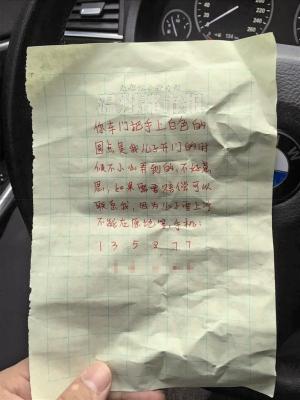 你车门把手上白色的
圆点是我儿子开门的时
候不小心弄到的，不好意
思，如果需要赔偿可以
联系我，因为儿子要上学
不能在原地等，手机：
1 3 5 8 7 7